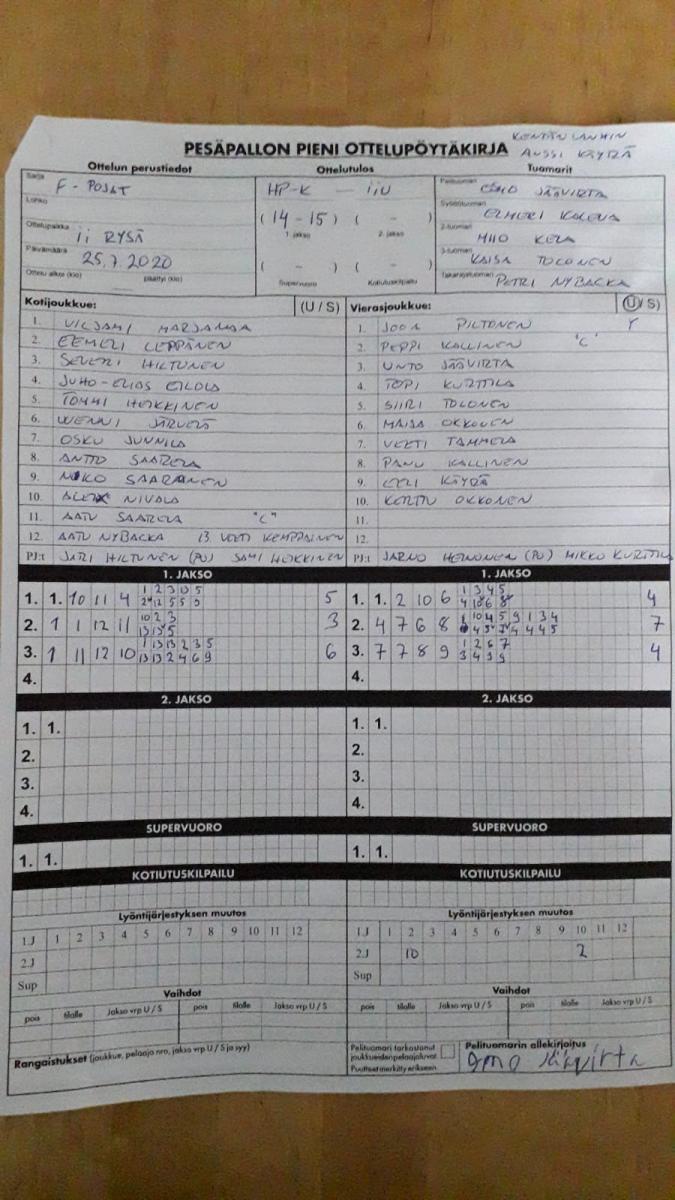 KENTÄN VANHIN
PESÄPALLON PIENI OTTELUPÖYTÄKIRJA ANSSI KÄYRÄ
Ottelun perustiedot Ottelutulos Tuomarit
Sarja F - POJAT HP-K - IiU Pelituomari JÄÄVIRTA
Lohko Syöttötuomari ELMERI KALEVA
Ottelupaikka Ii RYSÄ (14-15) ( - ) 2-tuomari KELA
1. jakso 2. jakso
Päivämäärä 25.7.2020 3-tuomari KAISA TOLONEN
Ottelu alkoi (klo) päättyi (klo) ( - ) ( - ) Takarajatuomari PETRI NYBACKA
Supervuoro Kotiutuskilpailu
Kotijoukkue: (U / S) Vierasjoukkue: (U / S)
1. VILJAMI MARJAMAA 1. JOONA PILTONEN Y
2. EEMELI LEPPÄNEN 2. PEPPI KALLINEN "C"
3. SEVERI HILTUNEN 3. UNTO JÄÄVIRTA
4. JUHO-ELIAS 4. TOPI KURTTILA
5. TOMMI HEIKKINEN 5. SIIRI TOLONEN
6. WENNI JÄRVELÄ 6. MAIJA OKKONEN
7. OSKU JUNNILA 7. VEETI TAMMELA
8. ANTTO SAARELA 8. PANU KALLINEN
9. NIKO SAARANEN 9. EELI KÄYRÄ
10. ALEX NIVALA 10. KERTTU OKKONEN
11. AATU SAARELA "C" 11.
12. AATU NYBACKA 13 VEETI KEMPPAINEN 12.
PJ:t JARI HILTUNEN (PJ) SAMI HEIKKINEN PJ:t JARNO HEINONEN (PJ) MIKKO KURTTILA
1. JAKSO 1. JAKSO
1. 1. 10 11 4 5 1. 1. 2 10 6 1 3 4 5 4
2. 1 1 12 11 10 2 3 3 2. 4 7 6 8 7
3. 1 11 12 10 1 13 13 2 3 5 6 3. 7 7 8 9 1 2 6 7 4
13 13 2 4 6 9 3 4 9 9
4. 4.
2. JAKSO 2. JAKSO
1. 1. 1. 1.
2. 2.
3. 3.
4. 4.
SUPERVUORO SUPERVUORO
1. 1. 1. 1.
KOTIUTUSKILPAILU KOTIUTUSKILPAILU
Lyöntijärjestyksen muutos Lyöntijärjestyksen muutos
1.J 1 2 3 4 5 6 7 8 9 10 11 12 1.J 1 2 3 4 5 6 7 8 9 10 11 12
2.J 2.J 10 2
Sup Sup
Vaihdot Vaihdot
pois tilalle Jakso vrp U / S pois tilalle Jakso vrp U / S pois tilalle Jakso vrp U / S pois tilalle Jakso vrp U / S
Rangaistukset (joukkue, pelaaja nro, jakso vrp U / S ja syy) Pelituomari tarkastanut Pelituomarin allekirjoitus
joukkueiden pelaajaluvat
Puutteet merkitty erikseen Jäävirta